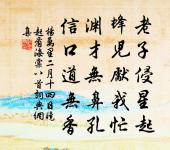 老子侵星起
蜂兒獻我忙
淵才無鼻孔
信口道無香
楊萬里二月十四日曉
起看海棠八首詞典網
集